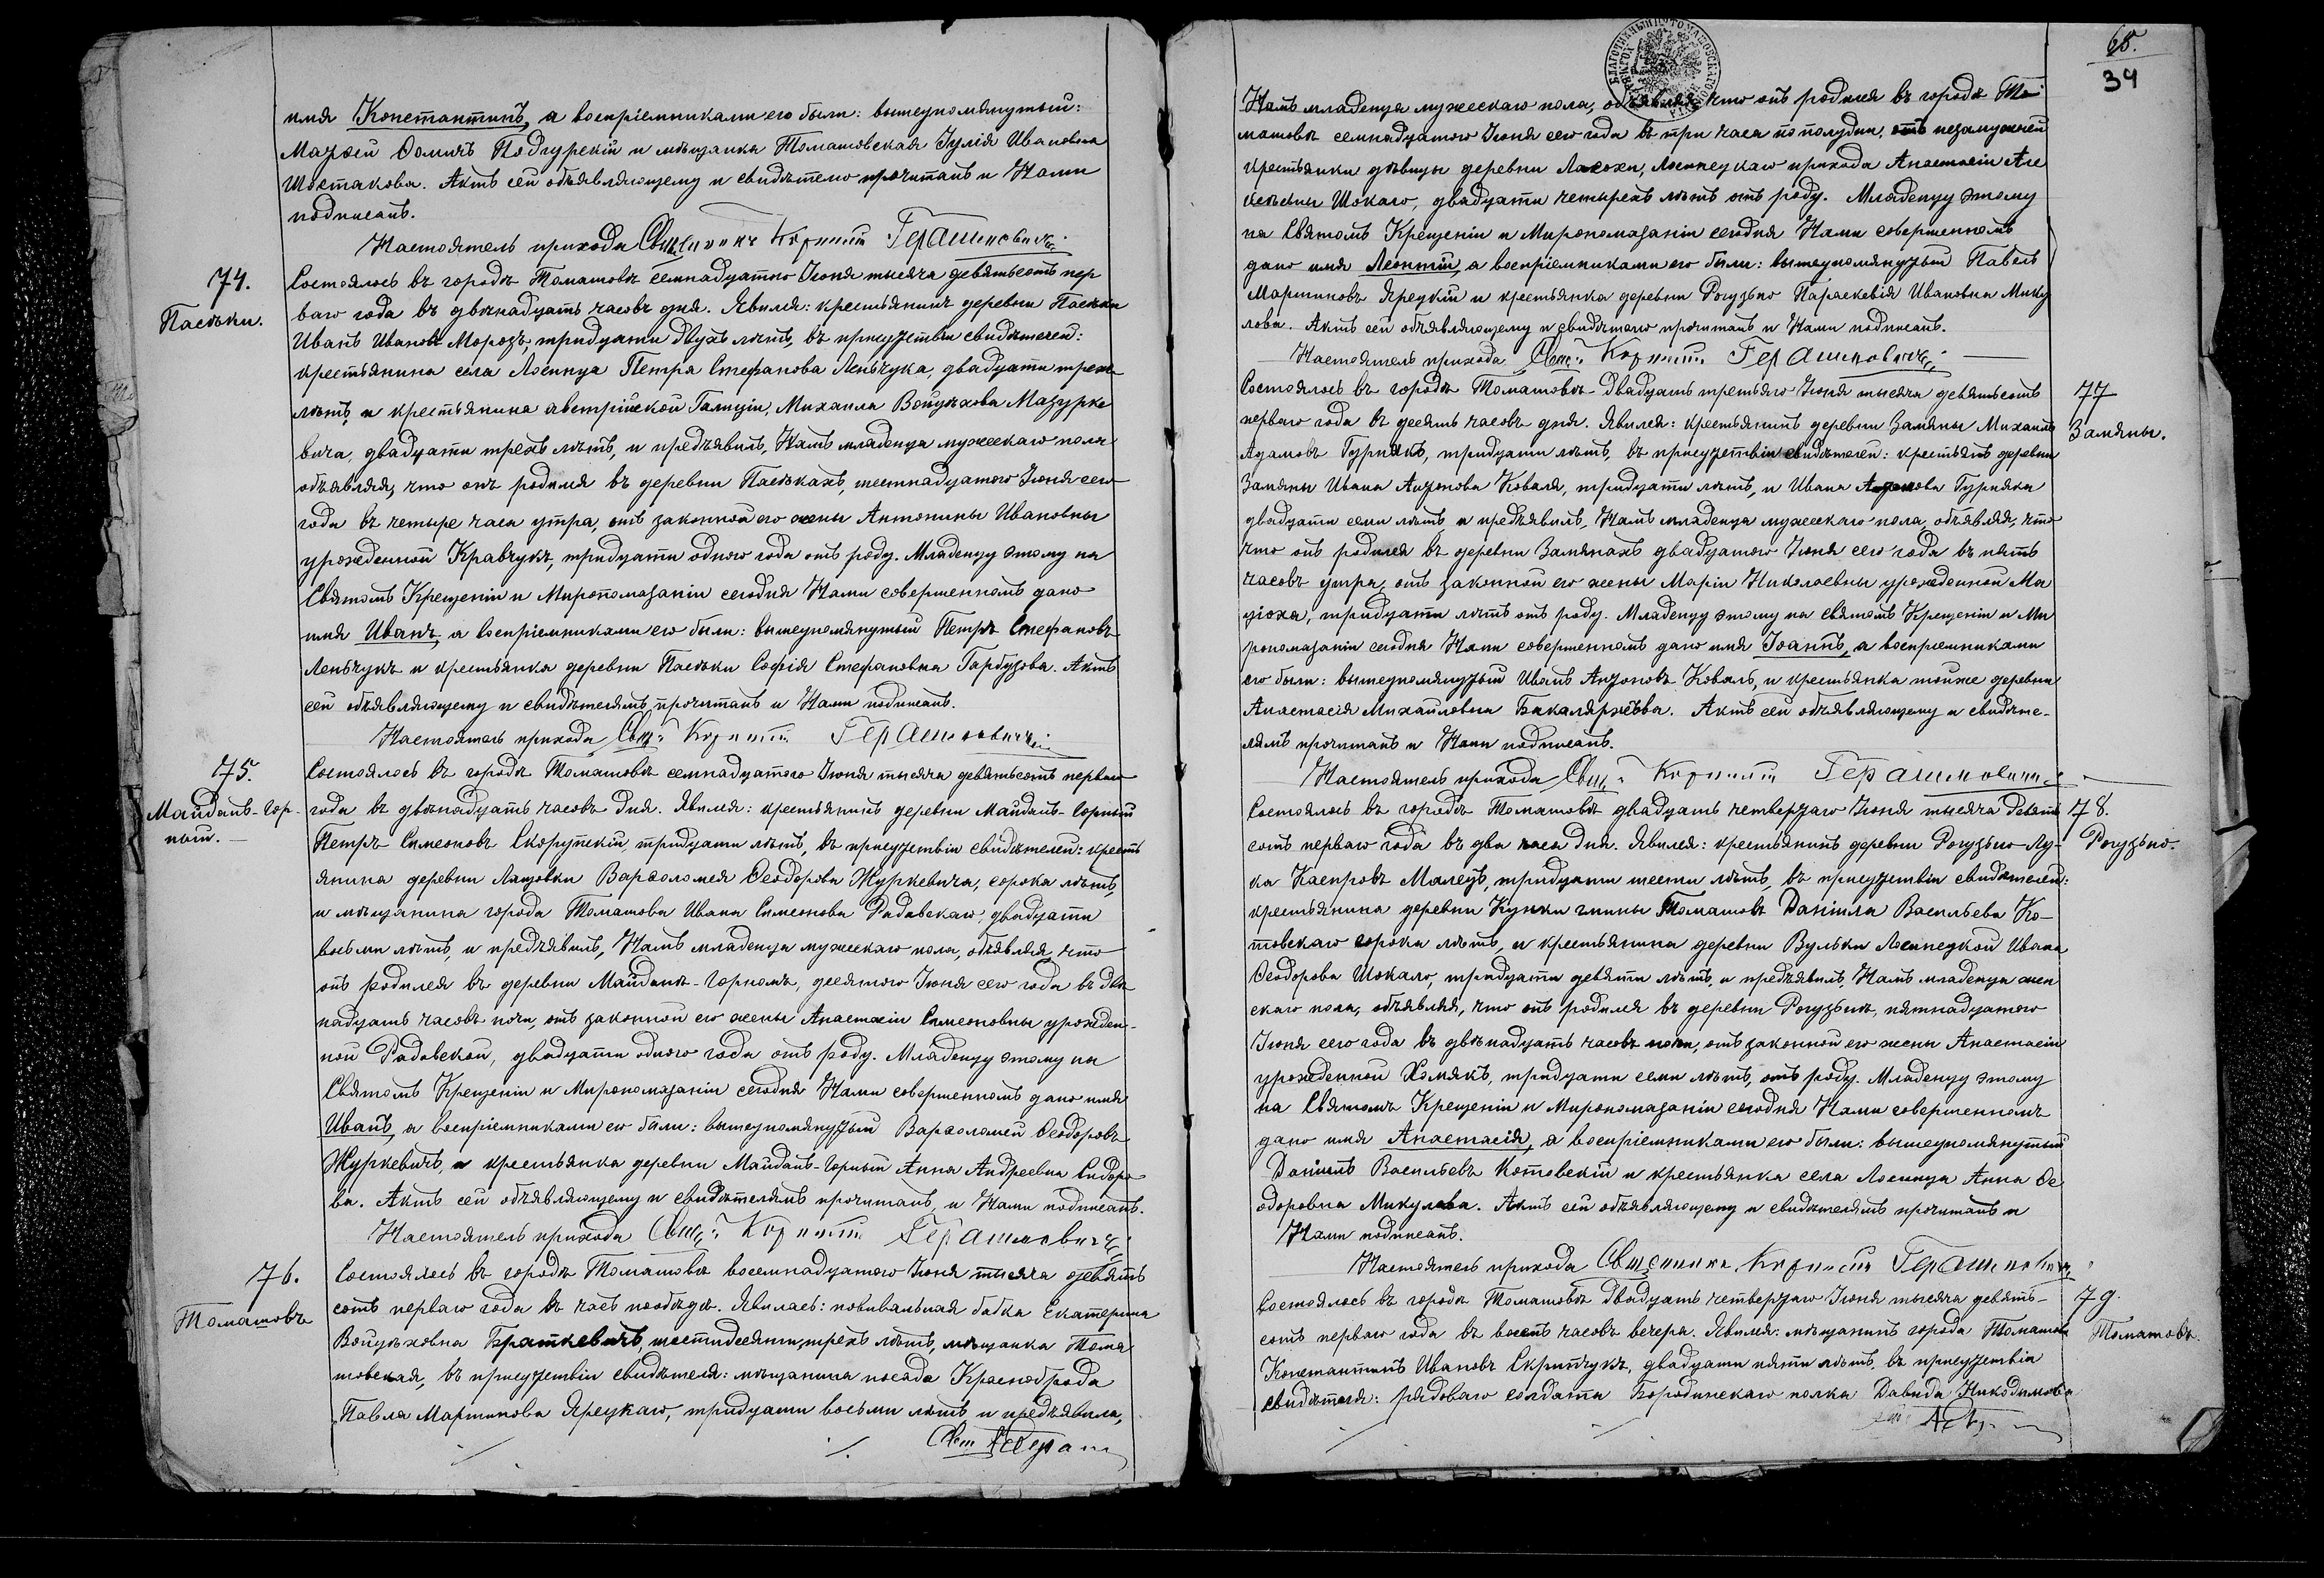 имя Константинъ, а воспріемниками его были: вышеупомянутый:
Матѳей Ѳоминъ Подгурскій и мѣщанка Томашовская Іулія Ивановна
Шостакова. Актъ сей объявляющему и свидѣтелю прочитанъ и Нами
подписанъ.
Настоятель прихода Священникъ Корнилій Герашиковичъ
74.
Пасѣки.
Состоялось въ городѣ Томашовѣ семнадцатого Іюня тысяча девятьсотъ пер
ваго года въ двѣнадцать часовъ дня. Явился: крестьянинъ деревни Пасѣки
Иванъ Ивановъ Морозъ, тридцати двухъ лѣтъ, въ присутствіи свидѣтелей:
крестьянина села Лосинца Петра Стефанова Леньчука, двадцати трехъ
лѣтъ, и крестьянина австрійской Галиціи, Михаила Войцѣхова Мазурке
вича, двадцати трехъ лѣтъ, и предъявилъ, Намъ младенца мужескаго пола
объявляя, что онъ родился въ деревни Пасѣкахъ, шестнадцатого Іюня сего
года въ четыре часа утра, отъ законной его жены Антонины Ивановны
урожденной Кравчукъ, тридцати одного года отъ роду. Младенцу этому на
Святомъ Крещеніи и Миропомазаніи сегодня Нами совершенномъ дано
имя Иванъ, а воспріемниками его были: вышеупомянутый Петръ Стефановъ
Леньчукъ и крестьянка деревни Пасѣки Софія Стефановна Гарбузова. Актъ
сей объявляющему и свидѣтелямъ, прочитанъ и Нами подписанъ.
Настоятель прихода Свящ. Корнилій Герашиковичъ
75.
Майданъ-Гор-
ный.
Состоялось въ городѣ Томашовѣ семнадцатого Іюня тысяча девятьсотъ первого
года въ двѣнадцать часовъ дня. Явился: крестьянинъ деревни Майданъ-Горный
Петръ Симеоновъ Скорупскій, тридцати лѣтъ, въ присутствіи свидѣтелей: кресть
янина деревни Лащовки Варѳоломея Ѳеодорова Журкевича, сорока лѣтъ,
и мѣщанина города Томашова Ивана Симеонова Радавскаго, двадцати
восьми лѣтъ, и предъявилъ, Намъ младенца мужескаго пола, объявляя, что
онъ родился въ деревни Майданѣ-Горномъ, десятого Іюня сего года въ двѣ
надцать часовъ ночи, отъ законной его жены Анастасіи Симеоновны урожден-
ной Радавской, двадцати одного года отъ роду. Младенцу этому на
Святомъ Крещеніи и Миропомазаніи сегодня Нами совершенномъ дано имя
Иванъ, а воспріемниками его были: вышеупомянутый Варѳоломей Ѳеодоровъ
Журкевичъ, и крестьянка деревни Майданъ-Горный Анна Андреевна Сидоро
ва. Актъ сей объявляющему и свидѣтелямъ прочитанъ, и Нами подписанъ.
Настоятель прихода Свящ. Корнилій Герашиковичъ
76.
Томашовъ
Состоялось въ городѣ Томашовѣ восемнадцатого Іюня тысяча девять
сотъ перваго года въ часъ пообѣдѣ. Явилась: повивальная бабка Екатерина
Войцѣховна Браткевичъ, шестидесяти трехъ лѣтъ, мѣщанка Тома
шовская, въ присутствіи свидѣтеля: мѣщанина посада Красноброда
Павла Мартинова Ярецкаго, тридцати восьми лѣтъ, и предъявила,
65.
34
Намъ младенца мужескаго пола, объявляя, что онъ родился въ городѣ То
машовѣ семнадцатого Іюня сего года въ три часа по полудни, отъ незамужней
крестьянки дѣвицы деревни Ласохи, Лосинецкаго прихода Анастасіи Але
ксѣевны Шокало, двадцати четырехъ лѣтъ отъ роду. Младенцу этому
на Святомъ Крещеніи и Миропомазаніи сегодня Нами совершенномъ
дано имя Леонтій, а воспріемниками его были: вышеупомянутый Павелъ
Мартиновъ Ярецкій и крестьянка деревни Рогузьно Параскевія Ивановна Мику
лова. Актъ сей объявляющему и свидѣтелю прочитанъ и Нами подписанъ.
Настоятель прихода Свящ. Корнилій Герашиковичъ
Состоялось въ городѣ Томашовѣ двадцать третьяго Іюня тысяча девятьсотъ
перваго года въ десять часовъ дня. Явился: крестьянинъ деревни Замяны Михаилъ
Адамовъ Гурнякъ, тридцати лѣтъ, въ присутствіи свидѣтелей: крестьянъ деревни
Замяны Ивана Антонова Коваля, тридцати лѣтъ, и Ивана Гурняка
двадцати семи лѣтъ и предъявилъ, Намъ младенца мужескаго пола, объявляя, что
что онъ родился въ деревни Замянахъ двадцатого Іюня сего года въ пять
часовъ утра, отъ законной его жены Маріи Николаевны урожденной Ма
ціоха, тридцати лѣтъ отъ роду. Младенцу этому на святомъ Крещеніи и Ми
ропомазаніи сегодня Нами совершенномъ дано имя Іоаннъ, а воспріемниками
его были: вышеупомянутый Иванъ Антоновъ Коваль, и крестьянка тойже деревни
Анастасія Михайловна Бакалярчева. Актъ сей объявляющему и свидѣте-
лямъ прочитанъ и Нами подписанъ.
Настоятель прихода Свящ. Корнилій Герашиковичъ
77
Замяны.
Состоялось въ городѣ Томашовѣ двадцать четвертаго Іюня тысяча девять
сотъ перваго года въ два часа дня. Явился: крестьянинъ деревни Рогузьно Лу-
ка Каспровъ Малецъ, тридцати шести лѣтъ, въ присутствіи свидѣтелей:
крестьянина деревни Кунки гмины Томашовъ Даніила Васильева Ко-
товскаго сорока лѣтъ, и крестьянина деревни Вульки Лосинецкой Ивана
Ѳеодорова Шокало, тридцати девяти лѣтъ, и предъявилъ, Намъ младенца жен
скаго пола, объявляя, что онъ родился въ деревни Рогузьнѣ, пятнадцатого
Іюня сего года въ двѣнадцать часовъ ночи, отъ законной его жены Анастасіи
урожденной Хомякъ, тридцати семи лѣтъ, отъ роду. Младенцу этому
на Святомъ Крещеніи и Миропомазаніи сегодня Нами совершенномъ
дано имя Анастасія, а воспріемниками его были: вышеупомянутый
Даніилъ Васильевъ Котовскій и крестьянка села Лосинца Анна Ѳе
одоровна Микулова. Актъ сей объявляющему и свидѣтелямъ прочитанъ и
Нами подписанъ.
Настоятель прихода Священникъ Корнилій Герашиковичъ
78.
Рогузьно.
Состоялось въ городѣ Томашовѣ двадцать четвертаго Іюня тысяча девять-
сотъ перваго года въ восемь часовъ вечера. Явился: мѣщанинъ города Томашова
Константинъ Ивановъ Скрипчукъ, двадцати пяти лѣтъ, въ присутствіи
свидѣтеля: рядоваго солдата Бородинскаго полка Давида Никодимова
79.
Томашовъ.